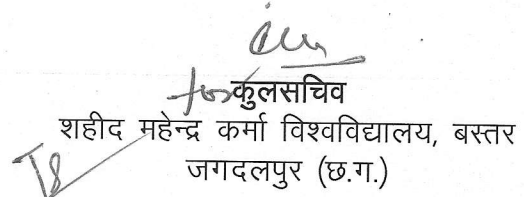 for कुलसचिव
शहीद महेन्द्र कर्मा विश्वविद्यालय, बस्तर
जगदलपुर (छ.ग.)